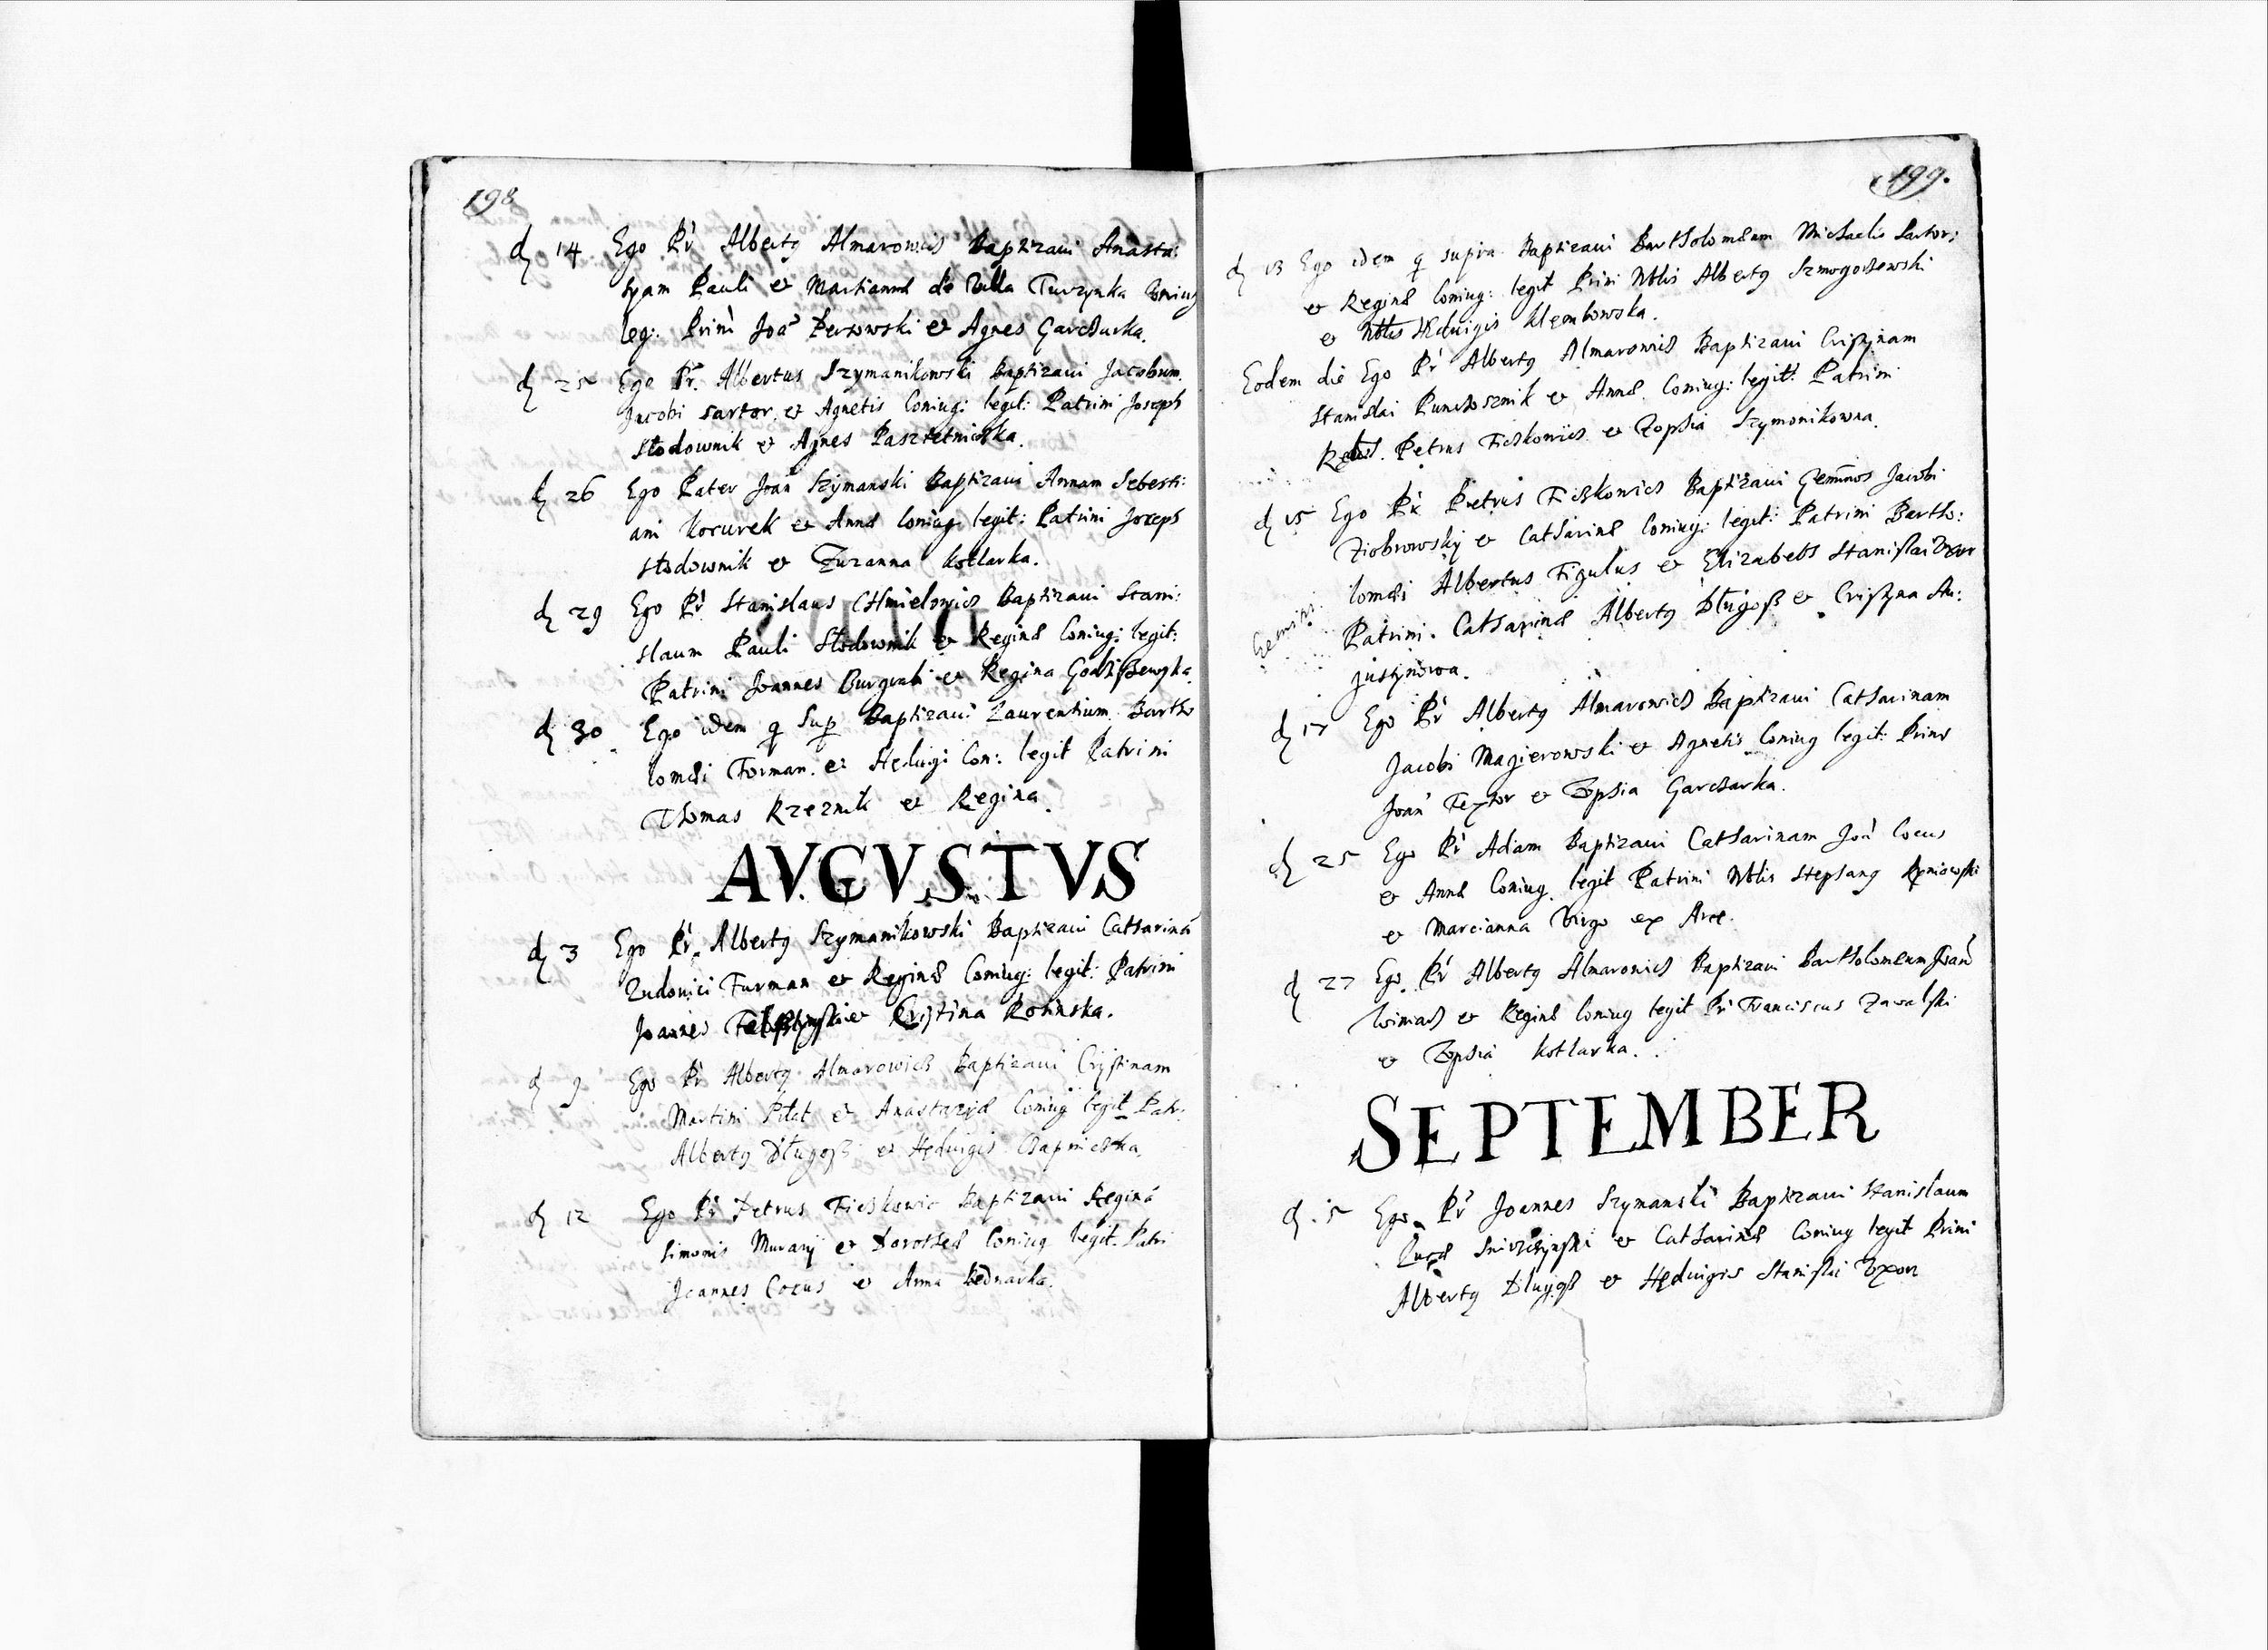 198
d 14 Ego Pr Albertq Almarowicz Baptizaui Anasta:
syam Pauli et Marianna de Villa Turzynka Coniug
leg: Prini Joa Perzowski et Agnes Garczarka.
d 25 Ego Pr. Albertus Szymanikowski Baptizaui Jacobum
Jacobi sartor et Agnetis Coniug: legit: Patrini Joseph
Słodownik et Agnes Pasztetniczka.
d 26 Ego Pater Joan Szymanski Baptizaui Annam Sebesti:
ani Kocurek et Annæ Coniug legit: Patrini Joseph
Słodownik et Zuzanna Kotlarka.
d 29 Ego Pr Stanislaus Chmielowicz Baptizaui Stani:
slaum Pauli Słodownik et Reginæ Coniug: legit:
Patrini Joannes et Regina
d 30 Ego idem q sup Baptizaui Laurentium Bartho
lomæi Forman et Heduigi Con: legit Patrini
Thomas Rzeznik et Regina
AVGVSTVS
d 3 Ego Pr. Albertq Szymanikowski Baptizaui Catharina
Ludouici Furman et Reginæ Coniug: legit: Patrini
Joannes et Cristina Rohnska.
d 9 Ego Pr Albertq Almarowicz Baptizaui Crystinam
Martini Piłat et Anastazyæ Coniug legit Patr:
Albertq Długosz et Heduigis Czapniczka
d 12 Ego Pr Petrus Ficzkowic Baptizaui Regina
Simonis Murarij et Dorotheæ Coniug legit Patri
Joannes Cocus et Anna Bednarka.
199.
d 13 Ego idem q supra Baptizaui Bartholomæum Michaelis Sartor;
et Reginæ Coniug: legit Prini Nblis Albertq Szmogorzewski
et Nblis Heduigis Klembowska.
Eodem die Ego Pr Albertq Almarowicz Baptizaui Cristinam
Stanislai et Annæ Coniug: legit: Patrini
Petrus Ficzkowicz et Zophia Szymonikowna.
d 15 Ego Pr Petrus Ficzkowicz Baptizaui Geminos Jacobi
Ziobrowskij et Catharinæ Coniug: legit: Patrini Bartho:
lomæi Albertus Figulus et Elizabeth Stanislai Vxor
Gemini.
Patrini Catharinæ Albertq Długosz et Cristyna Au:
justynowa.
d 17 Ego Pr Albertq Almarowicz Baptizaui Catharinam
Jacobi Magierowski et Agnetis Coniug legit: Prini
Joan Textor et Zophia Garczarka.
d 25 Ego Pr Adam Baptizaui Catharinam Joa Cocus
et Annæ Coniug legit Patrini Nblis Stephanq
et Marcianna Virgo ex Arce.
d 27 Ego Pr Albertq Almarowicz Baptizaui Bartholomeum Joan
Winiarz et Reginæ Coniug legit Pr Franciscus Zawalski
et Zophia Kotlarka.
SEPTEMBER
d 5 Ego Pr Joannes Szymanski Baptizaui Stanislaum
Lucæ et Catharinæ Coniug legit Prini
Albertq Dlugosz et Heduigis Stanislai Vxor